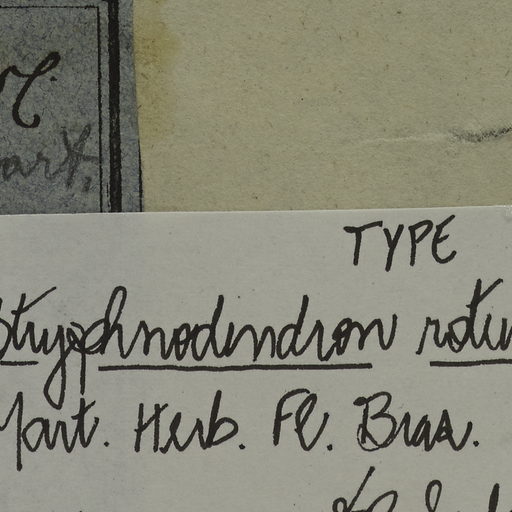 art.
TYPE
Stryphnodendron rotun
Mart. Herb. Fl. Bras.